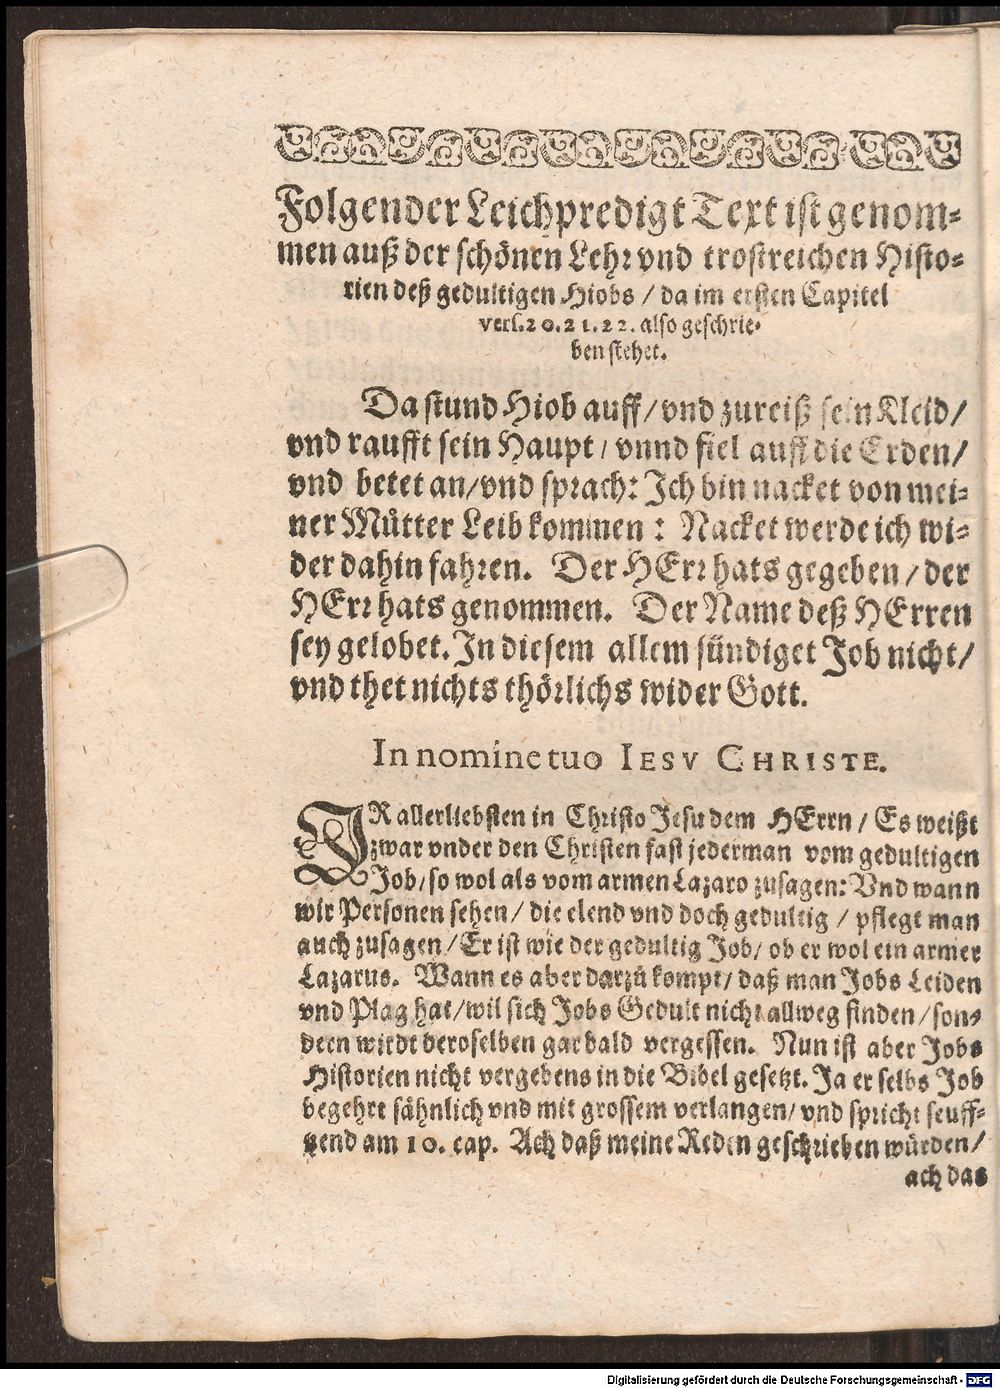 Folgender Leichpredigt Text ist genom-
men auß der schönen Lehr vnd trostreichen Histo-
rien deß gedultigen Hiobs / da im ersten Capitel
vers. 20. 21. 22. also geschrie-
ben stehet.
Da stund Hiob auff / vnd zureiß sein Kleid /
vnd raufft sein Haupt / vnnd fiel auff die Erden /
vnd betet an / vnd sprach: Ich bin nacket von mei-
ner Mütter Leib kommen : Nacket werde ich wi-
der dahin fahren. Der HErr hats gegeben / der
HErr hats genommen. Der Name deß HErren
sey gelobet. In diesem allem sündiget Job nicht /
vnd thet nichts thörlichs wider Gott.
In nomine tuo IESV CHRISTE.
IR allerliebsten in Christo Jesu dem HErrn / Es weißt
zwar vnder den Christen fast jederman vom gedultigen
Job / so wol als vom armen Lazaro zusagen: Vnd wann
wir Personen sehen / die elend vnd doch gedultig / pflegt man
auch zusagen / Er ist wie der gedultig Job / ob er wol ein armer
Lazarus. Wann es aber darzů kompt / daß man Jobs Leiden
vnd Plag hat / wil sich Jobs Gedult nicht allweg finden / son-
dern wirdt deroselben gar bald vergessen. Nun ist aber Jobs
Historien nicht vergebens in die Bibel gesetzt. Ja er selbs Job
begehrt sähnlich vnd mit grossem verlangen / vnd spricht seuff-
tzend am 10. cap. Ach daß meine Reden geschrieben würden /
ach das
Digitalisierung gefördert durch die Deutsche Forschungsgemeinschaft - DFG